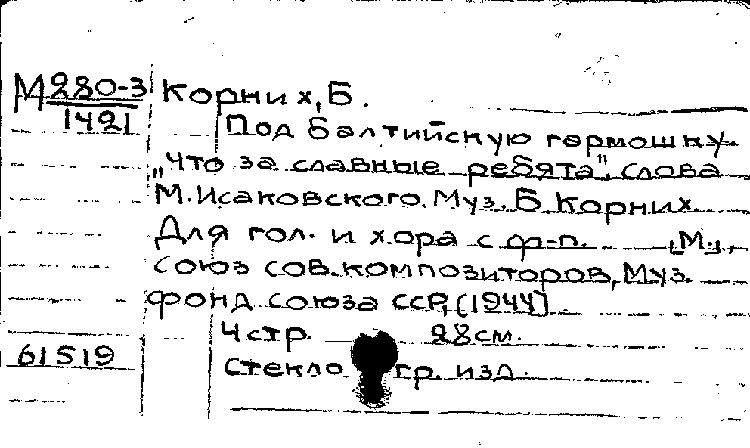 М 280-3 Корних, Б.
1421 Под балтийскую гармошку.
„Что за славные ребята". Слова
М. Исаковского. Муз. Б. Корних.
Для гол. и хора с ф-п. [М.],
Союз сов. композиторов, Муз.
фонд союза ССР, [1944].
4 стр. 28 см.
61519 Стекло гр. изд.